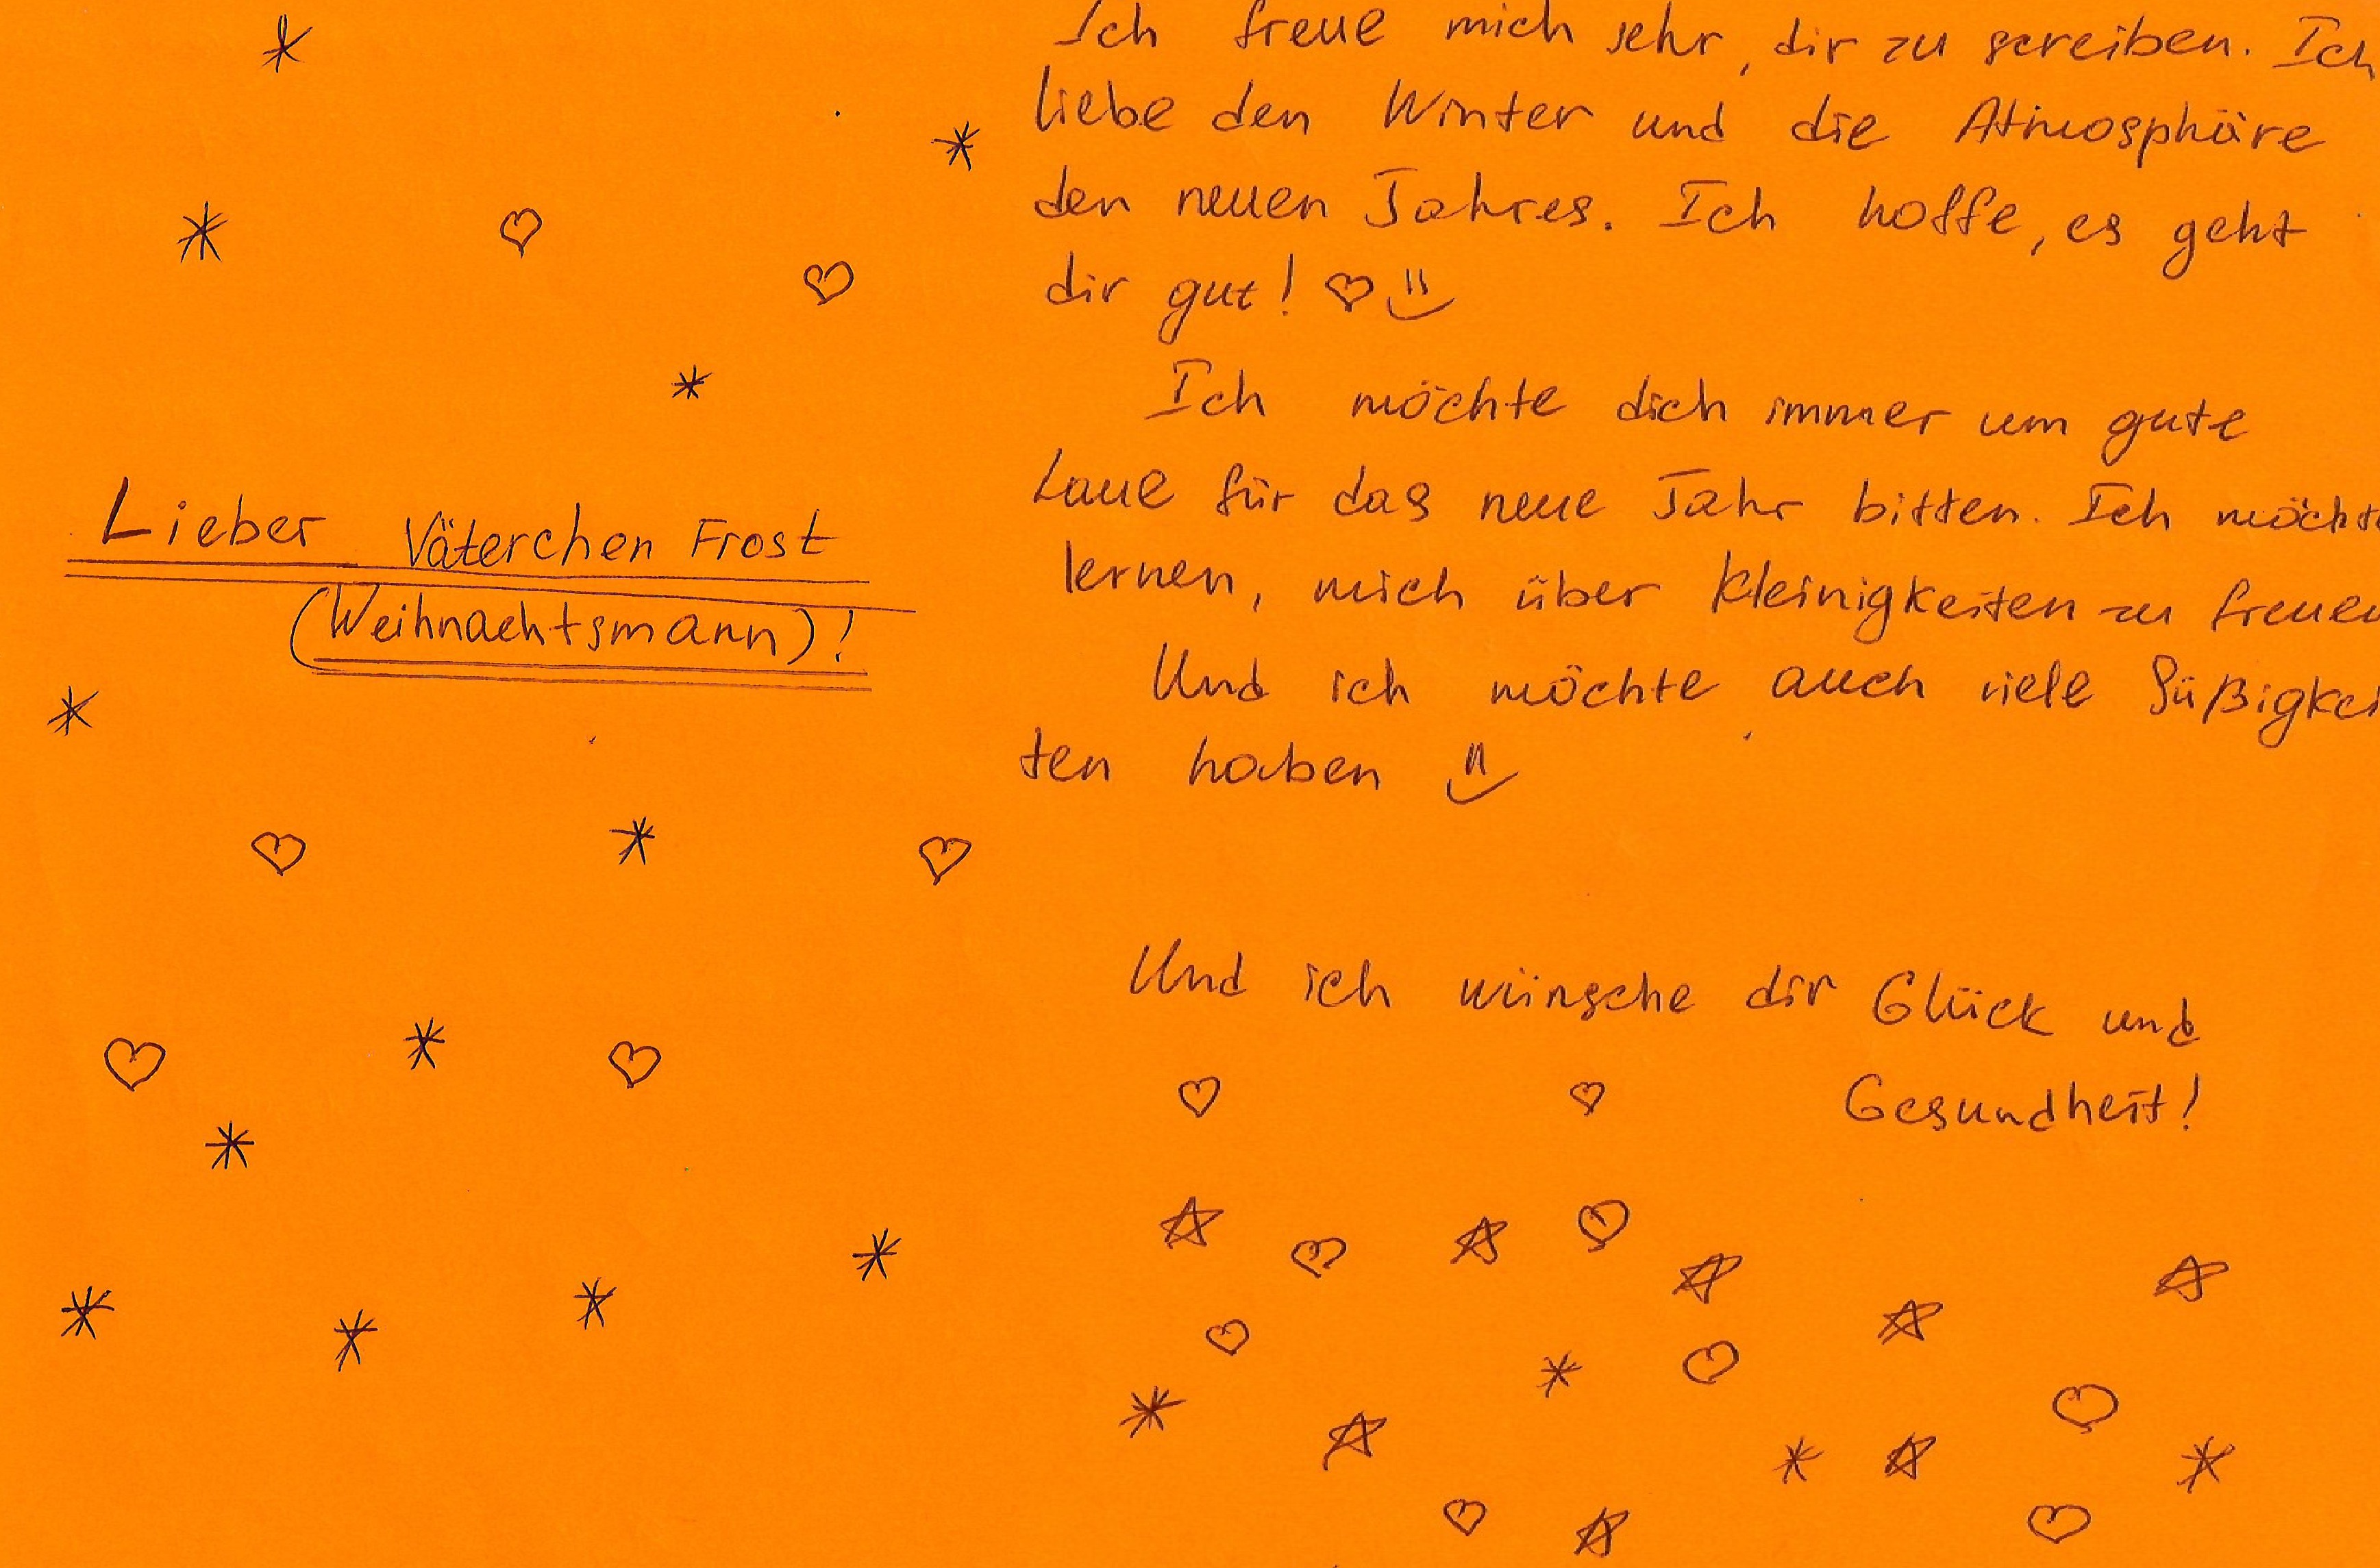 Lieber Väterchen Frost
(Weihnachtsmann)!
Ich freue mich sehr, dir zu screiben. Ich
liebe den Winter und die Atmosphäre
den neuen Jahres. Ich hoffe, es geht
dir gut! ♡
Ich möchte dich immer um gute
Laue für das neue Jahr bitten. Ich möcht
lernen, mich über Kleinigkeiten zu freuen
Und ich möchte auch viele Süßigkei
ten haben
Und ich wünsche dir Glück und
Gesundheit!